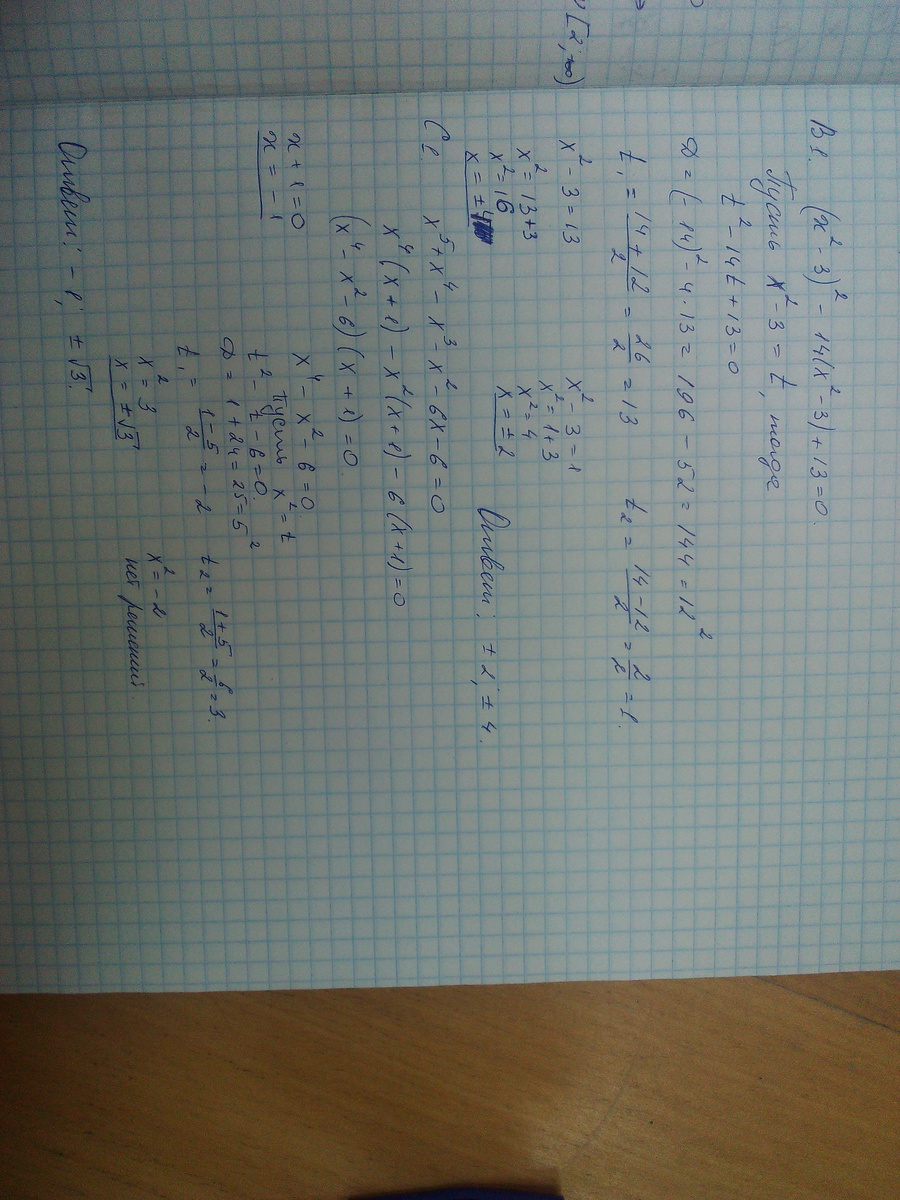 [2; +∞)
B1. (x² - 3)² - 14(x² - 3) + 13 = 0.
Пусть x² - 3 = t, тогда
t² - 14t + 13 = 0
D = (-14)² - 4·13 = 196 - 52 = 144 = 12²
t₁ = (14 + 12)/2 = 26/2 = 13 t₂ = (14 - 12)/2 = 2/2 = 1.
x² - 3 = 13 x² - 3 = 1
x² = 13 + 3 x² = 1 + 3
x² = 16 x² = 4
x = ±4 x = ±2
Ответ: ±2; ±4.
C1. x⁵ + x⁴ - x³ - x² - 6x - 6 = 0
x⁴(x + 1) - x²(x + 1) - 6(x + 1) = 0
(x⁴ - x² - 6)(x + 1) = 0
x + 1 = 0 x⁴ - x² - 6 = 0
x = -1 Пусть x² = t
t² - t - 6 = 0.
D = 1 + 24 = 25 = 5²
t₁ = (1 - 5)/2 = -2 t₂ = (1 + 5)/2 = 6/2 = 3.
x² = 3 x² = -2
x = ±√3 нет решений
Ответ: -1; ±√3.